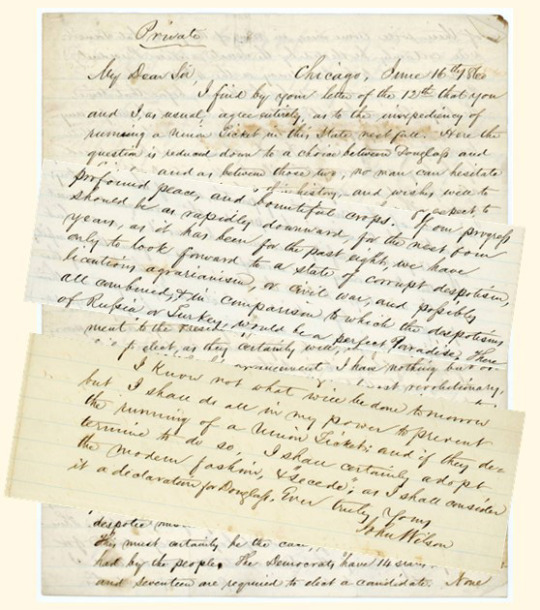 Private
Chicago, June 16th 1860
My Dear Sir,
I find by your letter of the 12th that you
and I, as usual, agree entirely, as to the inexpediency of
running a Union Ticket in this State next fall. Here the
question is reduced down to a choice between Douglass and
and as between those two, no man can hesitate
of history, and wishes well to
respect to
profound peace, and bountiful crops. If our progress
should be as rapidly downward, for the next four
years, as it has been for the past eight, we have
only to look forward to a state of corrupt despotism,
licentious agrarianism, or civil war, and possibly
all combined, & in comparison to which the despotisms
of Russia or Turkey would be a perfect Paradise. The
ment to the
elect, as they certainly will,
arrangement I have nothing but
most revolutionary,
I know not what will be done tomorrow
but I shall do all in my power to prevent
the running of a Union Ticket; and if they de-
termine to do so, I shall certainly adopt
the modern fashion, & "secede", as I shall consider
it a declaration for Douglass. Ever truly Yours
John Wilson
despotic
This must certainly be the case,
had by the people. The Democrats have 14
and seventeen are required to elect a candidate. None